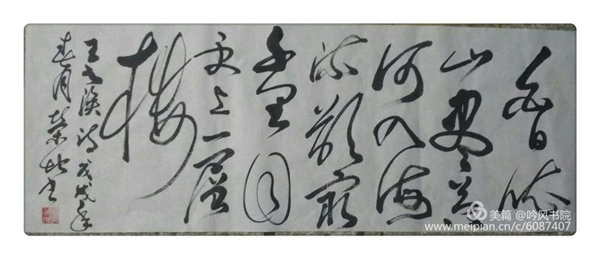 白日依
山盡黄
河入海
流欲窮
千里目
更上一層
樓
王之渙詩戊戌年
春月書
美篇 @吟风书院
www.meipian.cn/c/6087407